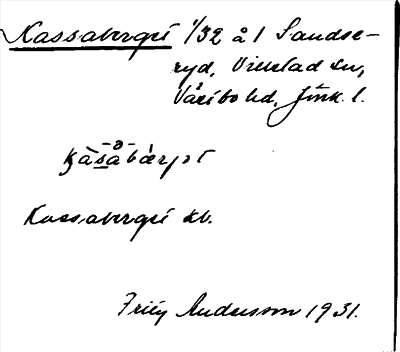 Kassaberget 1/32 å 1 Sandse-
ryd, Villstad sn,
Västbo hd, Jönk. l.
Kassaberget kb.
Fritz Andersson 1931.